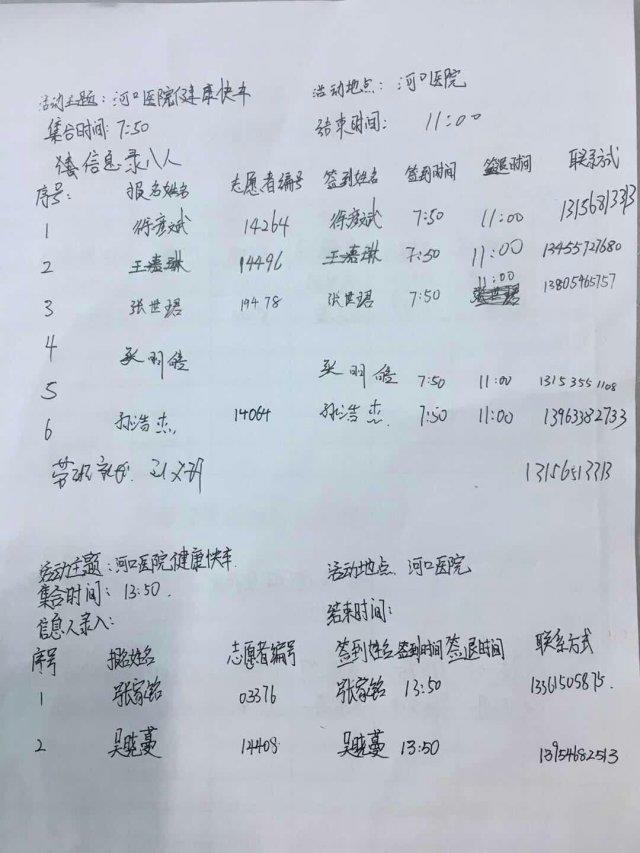 活动主题：河口医院健康快车 活动地点：河口医院
集合时间：7:50 结束时间：11:00
信息录入人
序号： 报名姓名 志愿者编号 签到姓名 签到时间 签退时间 联系方式
1 徐彦斌 14264 徐彦斌 7:50 11:00 13156813313
2 王嘉琳 14496 王嘉琳 7:50 11:00 13455727680
3 张世珺 19478 张世珺 7:50 11:00 13805465757
4
吴明皓 吴明皓 7:50 11:00 13153551108
5
6 孙浩杰 14064 孙浩杰 7:50 11:00 13963382733
带班家长 13156513313
活动主题：河口医院健康快车 活动地点 河口医院
集合时间：13:50. 结束时间：
信息人录入：
序号 报名姓名 志愿者编号 签到姓名 签到时间 签退时间 联系方式
1 张家铭 03376 张家铭 13:50 13361505875.
2 吴晓蔓 14408 吴晓蔓 13:50 13954682513